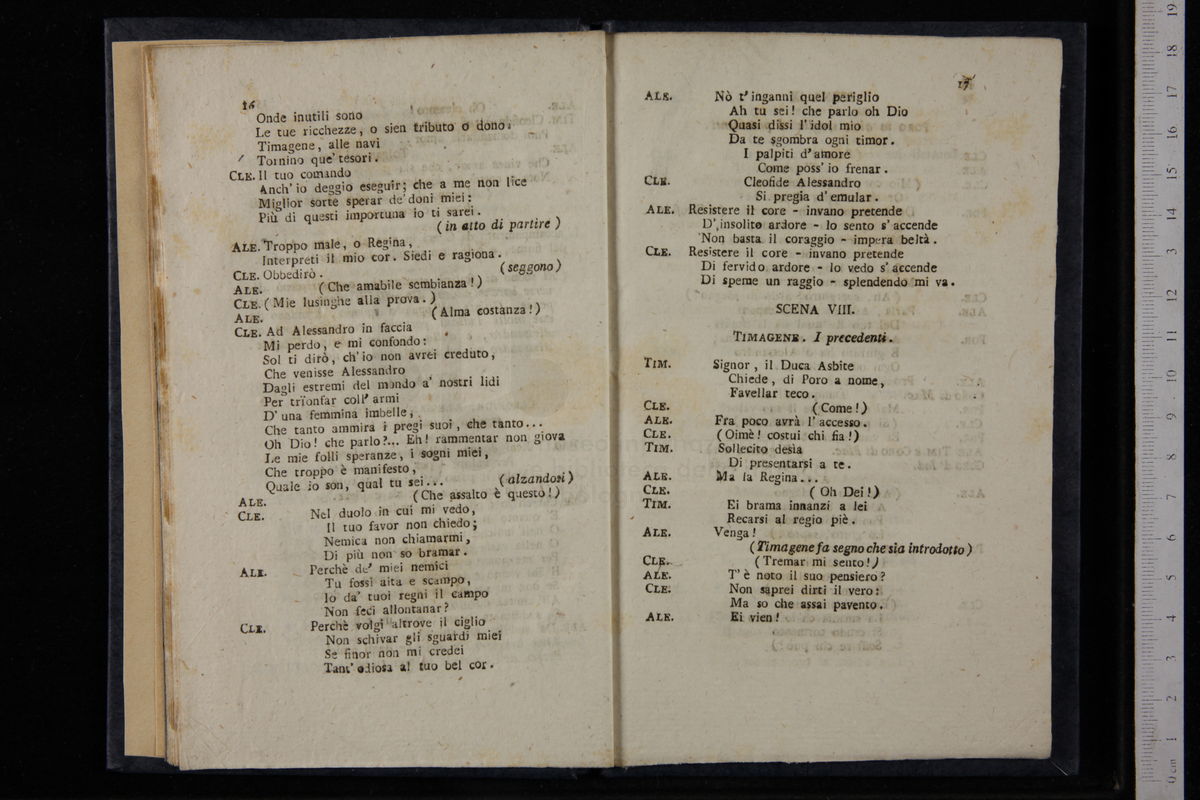 16
Onde inutili sono
Le tue ricchezze, o sien tributo o dono.
Timagene, alle navi
Tornino que' tesori.
CLE. Il tuo comando
Anch' io deggio eseguir; che a me non lice
Miglior sorte sperar de' doni miei:
Più di questi importuna io ti sarei.
(in atto di partire)
ALE. Troppo male, o Regina,
Interpreti il mio cor. Siedi e ragiona.
CLE. Obbedirò. (seggono)
ALE. (Che amabile sembianza!)
CLE. (Mie lusinghe alla prova.)
ALE. (Alma costanza!)
CLE. Ad Alessandro in faccia
Mi perdo, e mi confondo:
Sol ti dirò, ch' io non avrei creduto,
Che venisse Alessandro
Dagli estremi del mondo a' nostri lidi
Per trïonfar coll' armi
D' una femmina imbelle,
Che tanto ammira i pregi suoi, che tanto...
Oh Dio! che parlo?... Eh! rammentar non giova
Le mie folli speranze, i sogni miei,
Che troppo è manifesto,
Quale io son, qual tu sei... (alzandosi)
ALE. (Che assalto è questo!)
CLE. Nel duolo in cui mi vedo,
Il tuo favor non chiedo;
Nemica non chiamarmi,
Di più non so bramar.
ALE. Perchè de' miei nemici
Tu fossi aita e scampo,
Io da' tuoi regni il campo
Non feci allontanar?
CLE. Perchè volgi altrove il ciglio
Non schivar gli sguardi miei
Se finor non mi credei
Tant' odiosa al tuo bel cor.
17
ALE. Nò t' inganni quel periglio
Ah tu sei! che parlo oh Dio
Quasi dissi l' idol mio
Da te sgombra ogni timor.
I palpiti d' amore
Come poss' io frenar.
CLE. Cleofide Alessandro
Si pregia d' emular.
ALE. Resistere il core - invano pretende
D' insolito ardore - lo sento s' accende
Non basta il coraggio - impera beltà.
CLE. Resistere il core - invano pretende
Di fervido ardore - lo vedo s' accende
Di speme un raggio - splendendo mi va.
SCENA VIII.
TIMAGENE. I precedenti.
TIM. Signor, il Duca Asbite
Chiede, di Poro a nome,
Favellar teco.
CLE. (Come!)
ALE. Fra poco avrà l' accesso.
CLE. (Oimè! costui chi fia!)
TIM. Sollecito desìa
Di presentarsi a te.
ALE. Ma la Regina...
CLE. (Oh Dei!)
TIM. Ei brama innanzi a lei
Recarsi al regio piè.
ALE. Venga!
(Timagene fa segno che sia introdotto)
CLE. (Tremar mi sento!)
ALE. T' è noto il suo pensiero?
CLE. Non saprei dirti il vero:
Ma so che assai pavento.
ALE. Ei vien!
0 cm 1 2 3 4 5 6 7 8 9 10 11 12 13 14 15 16 17 18 19